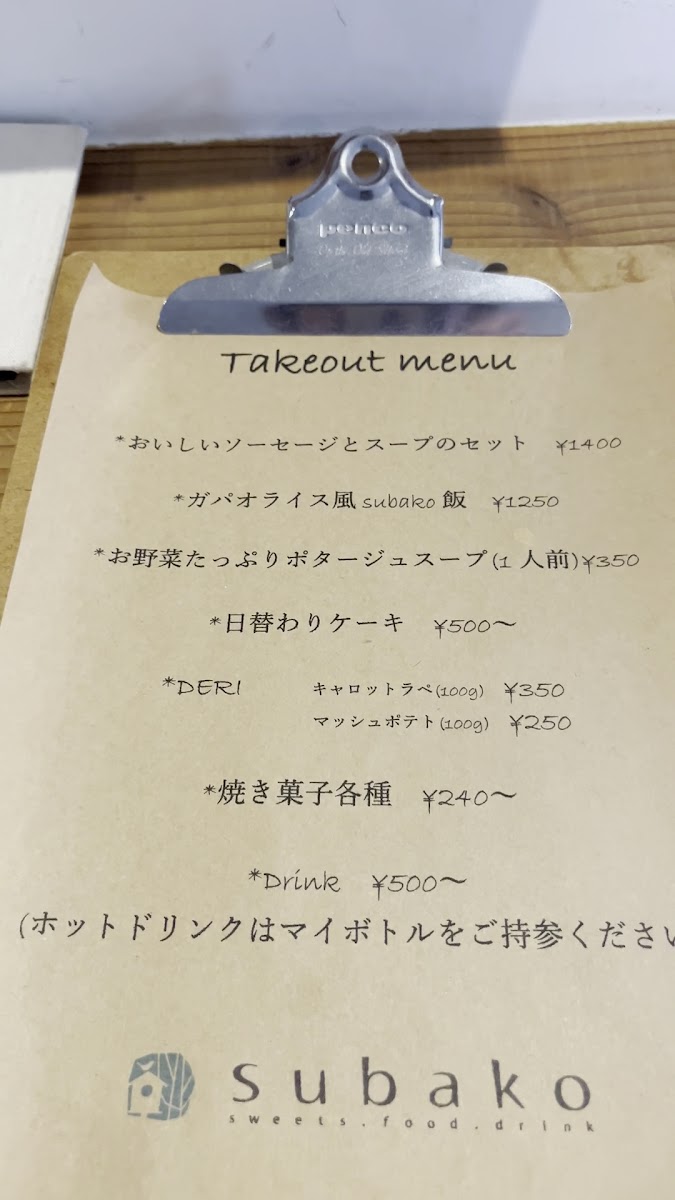 penco
Takeout menu
*おいしいソーセージとスープのセット ¥1400
*ガパオライス風subako飯 ¥1250
*お野菜たっぷりポタージュスープ(1人前)¥350
*日替わりケーキ ¥500〜
*DERI キャロットラペ(100g) ¥350
マッシュポテト(100g) ¥250
*焼き菓子各種 ¥240〜
*Drink ¥500〜
(ホットドリンクはマイボトルをご持参ください
subako
sweets.food.drink